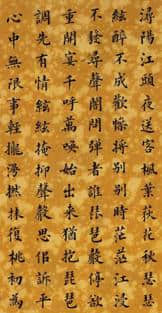 潯陽江頭夜送客楓葉荻花秋瑟瑟
絃醉不成歡慘將別別時茫茫江浸
不發尋聲闇問彈者誰琵琶聲停欲
重開宴千呼萬喚始出來猶抱琵琶
調先有情絃絃掩抑聲聲思似訴平
心中無限事輕攏慢撚抹復挑初為